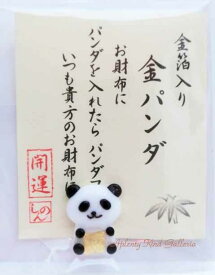 金箔入り
金パンダ
お財布に
パンダを入れたら パンダフ
いつも貴方のお財布に
開運
Plenty Kind Galleria